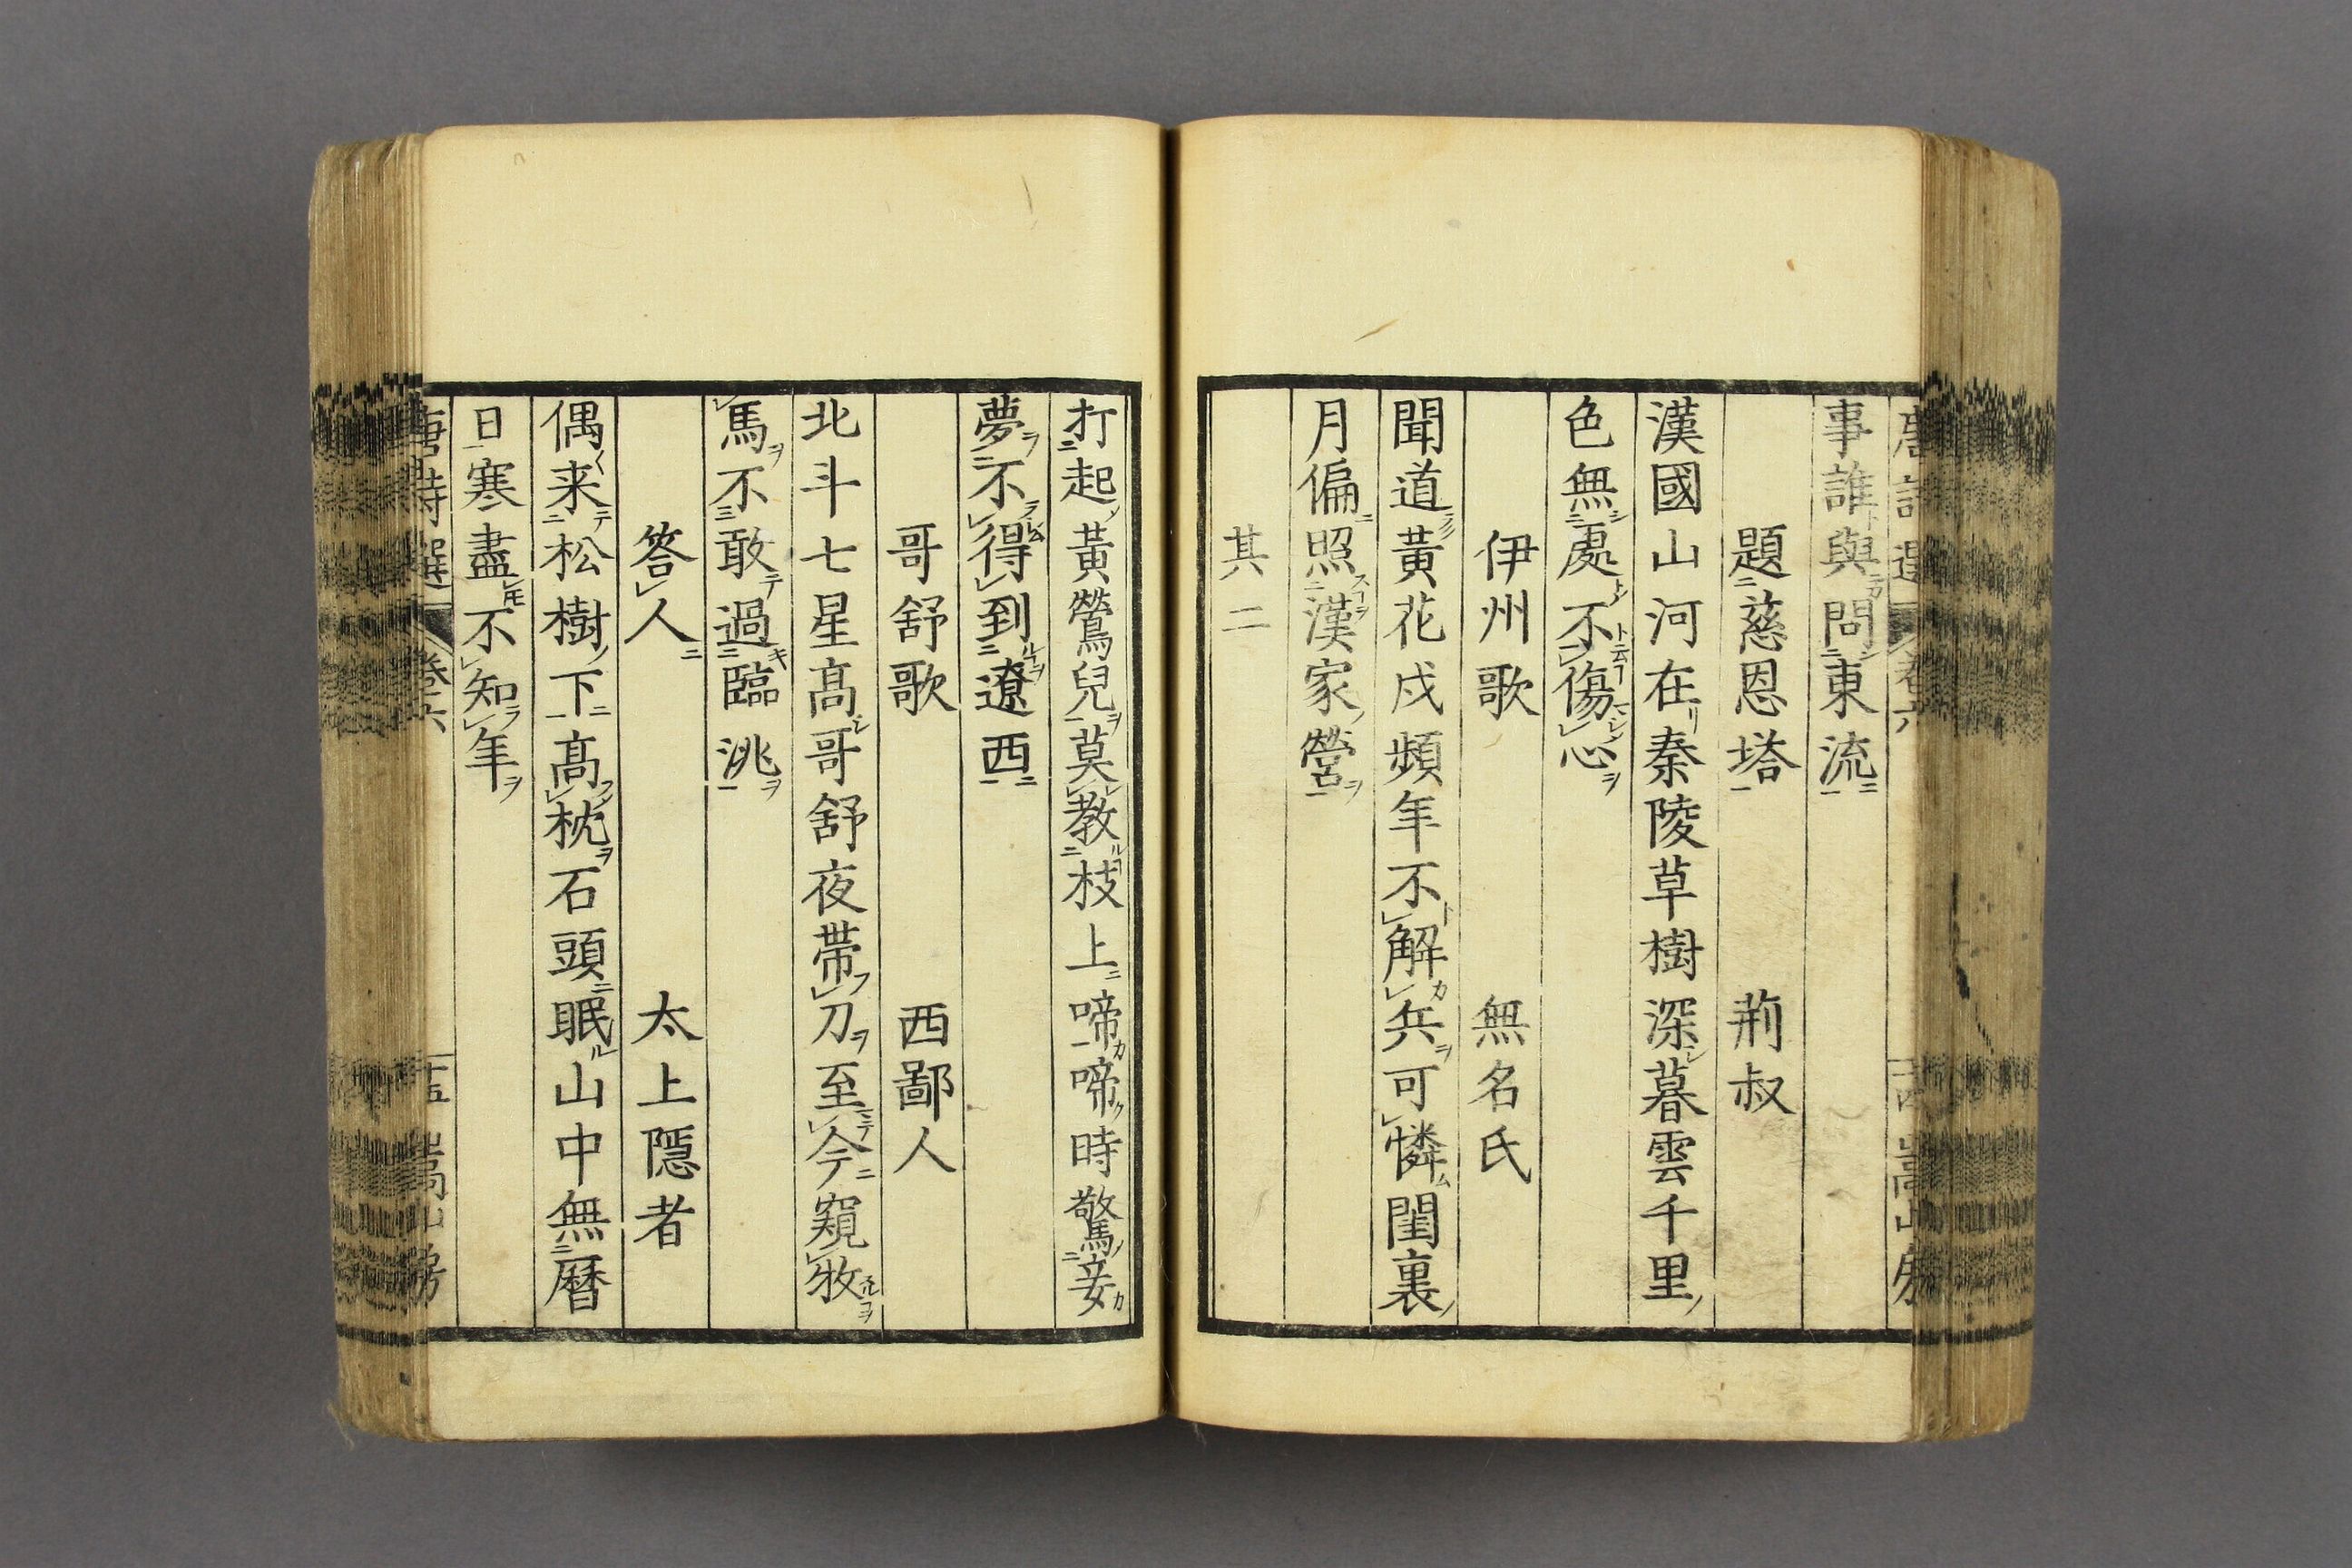 唐詩選 卷六 十四 嵩山房
事誰與問東流
題慈恩塔 荊叔
漢國山河在秦陵草樹深暮雲千里
色無處不傷心
伊州歌 無名氏
聞道黃花戍頻年不解兵可憐閨裏
月偏照漢家營
其二
打起黃鶯兒莫教枝上啼啼時驚妾
夢不得到遼西
哥舒歌 西鄙人
北斗七星高哥舒夜帶刀至今窺牧
馬不敢過臨洮
答人 太上隱者
偶来松樹下高枕石頭眠山中無曆
日寒盡不知年
唐詩選 卷六 十五 嵩山房